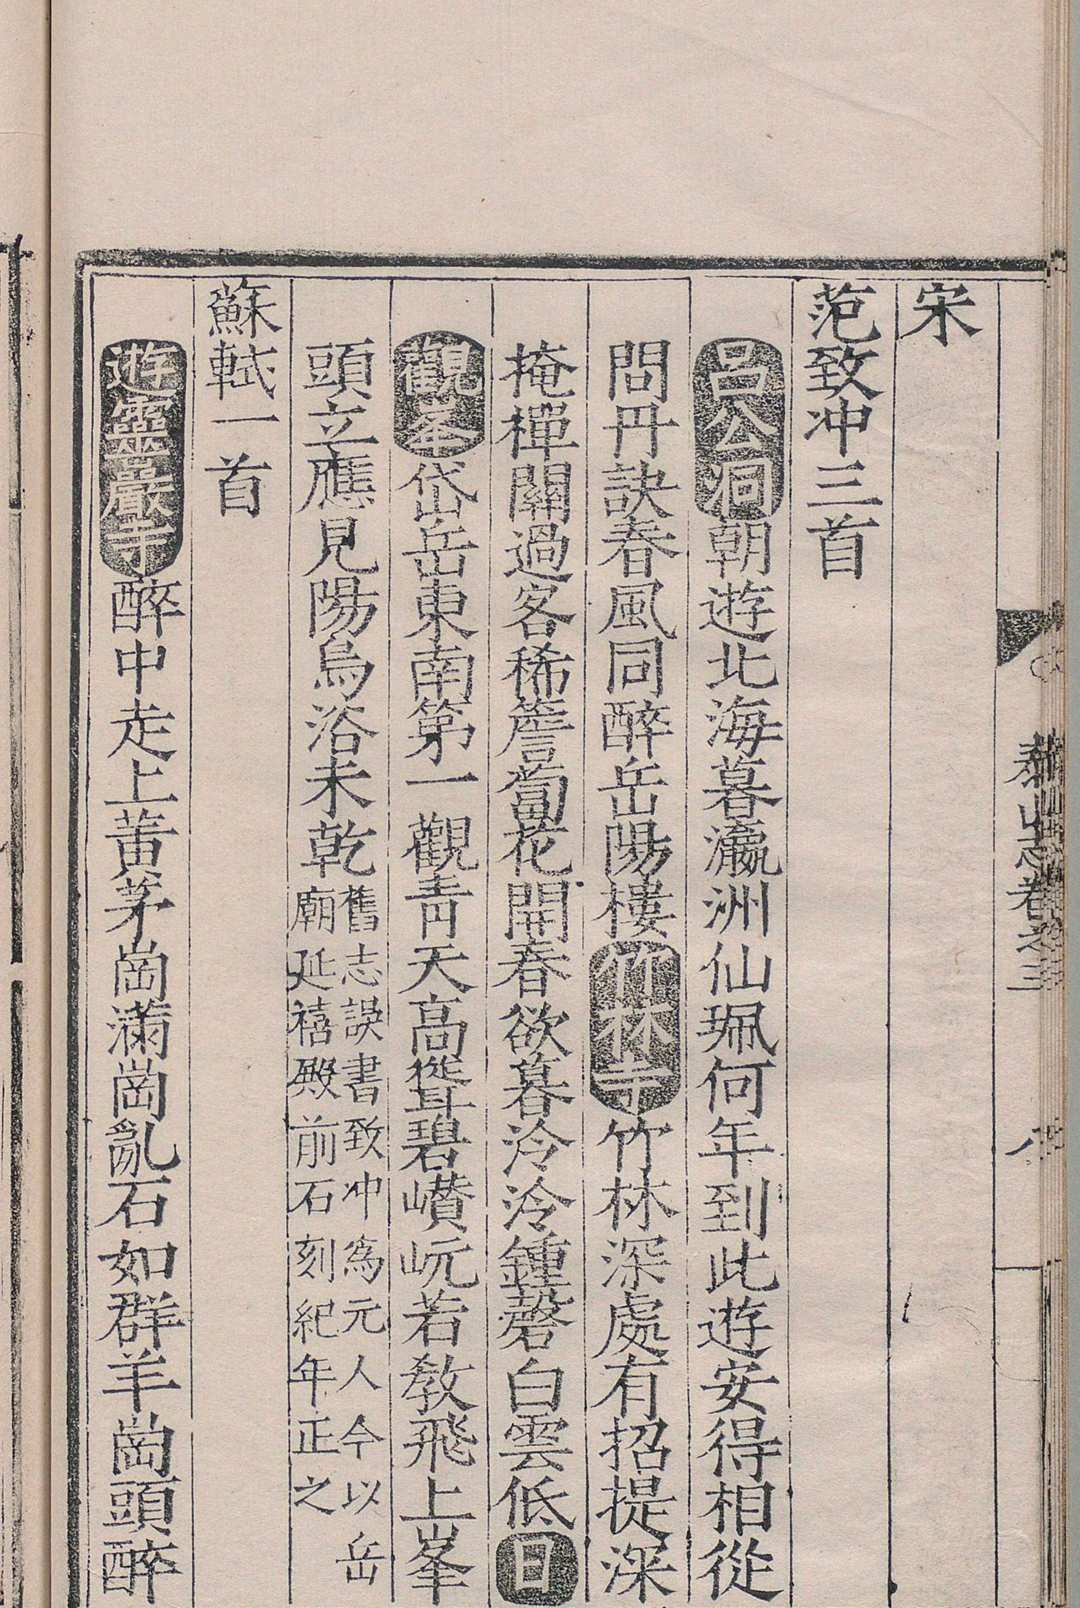 泰山志卷之三
宋
范致冲三首
呂公洞朝遊北海暮瀛洲仙珮何年到此遊安得相從
問丹訣春風同醉岳陽樓竹林寺竹林深處有招提深
掩檉關過客稀簷蔔花開春欲暮泠泠鍾磬白雲低日
觀峯岱岳東南第一觀青天高聳碧巑岏若教飛上峯
頭立應見陽烏浴未乾舊志誤書致冲為元人今以岳
廟延禧殿前石刻紀年正之
蘇軾一首
遊靈巖寺醉中走上黃茅崗滿崗亂石如群羊崗頭醉